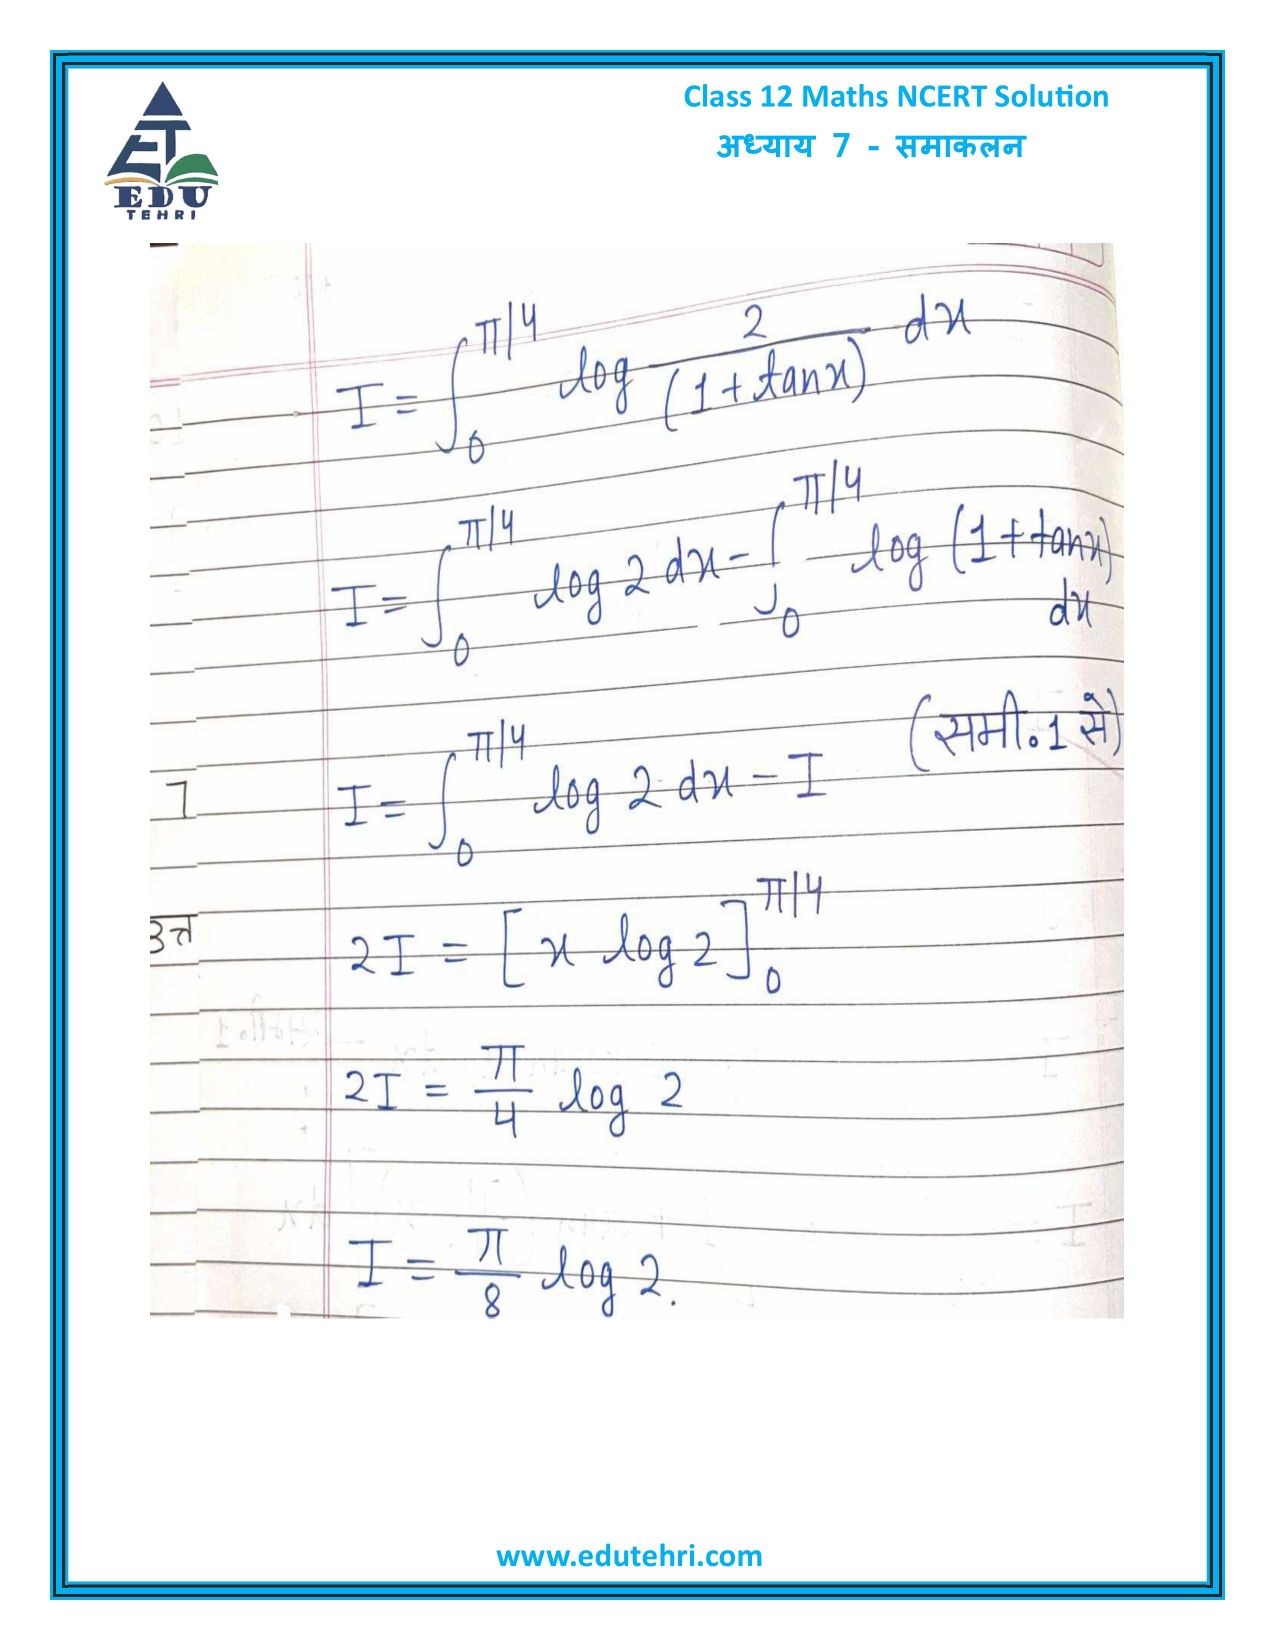 Class 12 Maths NCERT Solution
अध्याय 7 - समाकलन
EDU
TEHRI
I = ∫₀^{π/4} log 2/(1+tanx) dx
I = ∫₀^{π/4} log 2 dx - ∫₀^{π/4} log (1+tanx) dx
I = ∫₀^{π/4} log 2 dx - I (समी.1 से)
7
उत्त
2I = [x log 2]₀^{π/4}
2I = π/4 log 2
I = π/8 log 2.
www.edutehri.com